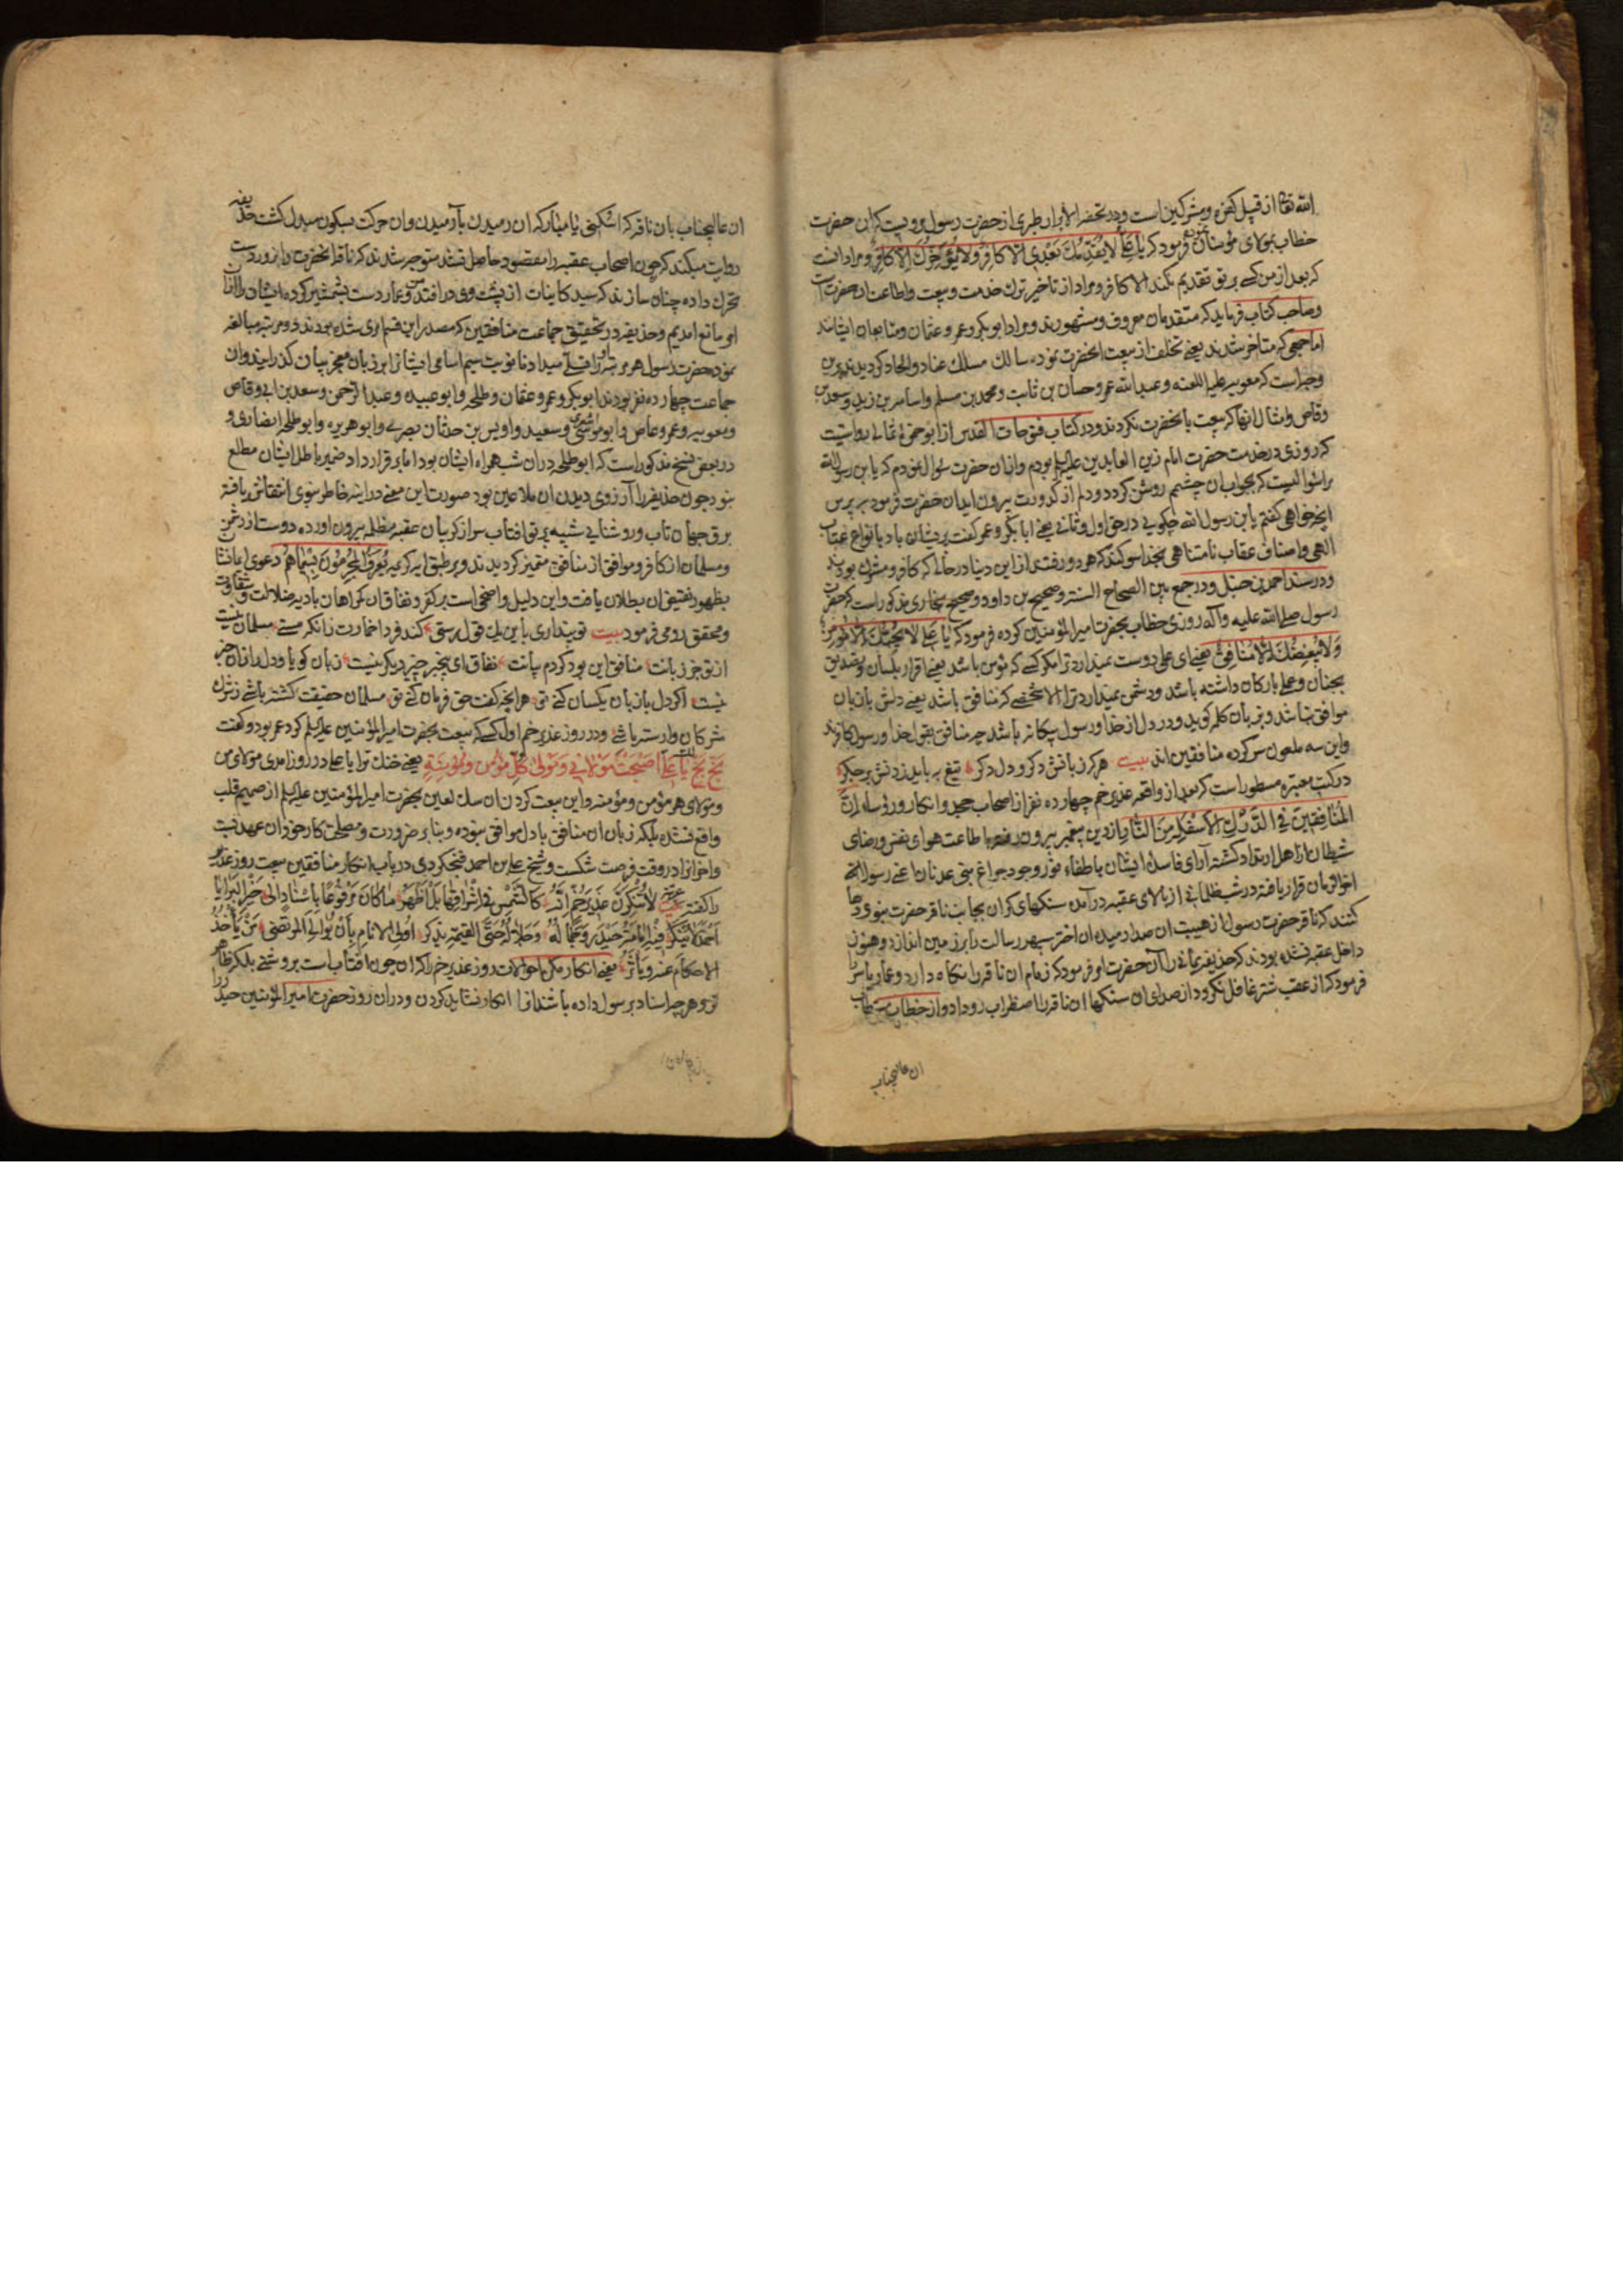 الله تعالی از قبیل کفره و مشرکین است و در تحفه الابرار طبری از حضرت رسول مرویست که ان حضرت
خطاب بمولای مؤمنان نموده فرمود که یا علی لا یتقدمک بعدی الا کافر ولا یتوخرک الا کافر و مراد انست
که بعد از من کسی بر تو تقدیم نکند الا کافر و مراد از تاخیر ترک خدمت و بیعت و اطاعت ان حضرتست
و صاحب کتاب فرماید که متقدمان معروف و مشهورند و مراد ابوبکر و عمر و عثمان و متابعان ایشانند
اما جمعی که متاخر شدند یعنی تخلف از بیعت انحضرت نموده سالک مسلک عناد و الحاد کردیدند
معویه علیه اللعنه و عبدالله عمر و حسان بن ثابت و محمد بن مسلم و اسامه بن زید و سعد بن
وقاص و امثال انها که بیعت بانحضرت نکردند و در کتاب فتوحات القدس از ابو حمزه ثمالی روایتست
که روزی در خدمت حضرت امام زین العابدین علیه السلم بودم و ازان حضرت سوال نمودم که یابن رسول الله
مرا سوالیست که بجواب ان چشمم روشن کردد و دلم از کدورت بیرون اید ان حضرت فرمود بپرس
انچه خواهی کفتم یابن رسول الله چکویی در حق اول و ثانی یعنی ابابکر و عمر کفت بریشان باد بانواع عتاب
الهی و اصناف عقاب نامتناهی بخدا سوکند که هر دو رفتند از این دنیا در حالی که کافر و مشرک بودند
و در مسند احمد بن حنبل و در جمع بین الصحاح السته و صحیح بن داود و صحیح بخاری مذکور است که حضرت
رسول صلی الله علیه و آله روزی خطاب بحضرت امیرالمؤمنین کرده فرمود که یا علی لا یحبک الا مؤمن
ولا یبغضک الا منافق یعنی ای علی دوست نمیدارد ترا مکر کسی که مؤمن باشد یعنی اقرار بلسان و تصدیق
بجنان و عمل بارکان داشته باشد و دشمن نمیدارد ترا الا شخصی که منافق باشد یعنی دلش بازبان
موافق نباشد و بزبان کلمه کوید و در دل از خدا و رسول بیکانه باشد چه منافق بقول خدا و رسول کافرند
و این سه ملعون سرکرده منافقین اند بیت هرکه زبانش دکر و دل دکر تیغ بباید زدنش بر جکر
در کتب معتبره مسطور است که بعد از واقعه غدیر خم چهارده نفر از اصحاب جحد و انکار و رؤساء ان
المنافقین فی الدرک الاسفل من النار از دین پیغمبر بیرون رفته باطاعت هوای نفس و رضای
شیطان از اهل ارتداد کشته آرای فاسده ایشان باطفاء نور وجود چراغ بنی عدنان اعنی رسول الله
اخر الزمان قرار یافته در شب ظلمانی از بالای عقبه در آمده سنکهای کران بجانب ناقه حضرت نبوی رها
کنند که ناقه حضرت رسول از هیبت ان صدا رمیده ان اختر سپهر رسالت را بر زمین اندازد و هنوز
داخل عقبه نشده بودند که حذیفه یمانی را آن حضرت امر فرمود که زمام ان ناقه را نکاه دارد و عمار یاسر را
فرمود که از عقب شتر غافل نکردد از صدای ان سنکها ان ناقه را اضطراب رو داد و از خطاب
ان عالیجناب
ان عالیجناب بان ناقه که اسکنی یا مبارکه ان رمیدن بآرمیدن و ان حرکت بسکون مبدل کشت حذیفه
روایت میکند که چون اصحاب عقبه را مقصود حاصل نشد متوجه شدند که ناقه انحضرت را بزور دست
تحرک داده چنان سازند که سید کاینات از پشت وی در افتد من و عمار دست بشمشیر کرده ایشان را ازان
امر مانع امدیم و حذیفه در تحقیق جماعت منافقین که مصدر این قسم امری شده بودند دو مرتبه مبالغه
نمود حضرت رسول هر مرتبه میداد نا نوبت سیم اسامی ایشانرا بر زبان معجز بیان کذرانید و ان
جماعت چهارده نفر بودند ابوبکر و عمر و عثمان و طلحه و ابو عبیده و عبدالرحمن و سعد بن ابی وقاص
و معویه و عمرو عاص و ابو موسی اشعری و سعید و اویس بن حدثان بصری و ابو هریره و ابو طلحه انصاری و
در بعض نسخ مذکور است که ابو طلحه دران شب همراه ایشان بود اما بر قرارداد ضمیر باطل ایشان مطلع
نبود چون حذیفه را آرزوی دیدن ان ملاعین بود صورت این معنی در اینه خاطر نبوی انتقاش یافته
برق جهان تاب و روشنایی شبیه بپرتو افتاب سر از کریبان عقبه مظلمه بیرون اورده دوست از دشمن
و مسلمان از کافر و موافق از منافق متمیز کردیدند و بر طبق ایه کریمه یعرف المجرمون بسیماهم دعوی
بظهور نقیض ان بطلان یافت و این دلیل واضحی است بر کفر و نفاق ان کمراهان بادیه ضلالت و شقاوت
و محقق رومی فرمود بیت تو پنداری باین یک قول رستی کند فردا خمارت زانکه مستی مسلمان نیست
از تو جز زبانت منافق این بود کردم بیانت نفاق ای بیخبر چیز دیکر نیست زبان کویا و دل را زان خبر
نیست اکر دل با زبان یکسان کنی تو هر انچه کفت حق فرمان کنی تو مسلمان حقیقت کشته باشی ز شرک
شرکان وارسته باشی و در روز غدیر خم اول کسی که بیعت بحضرت امیر المؤمنین علیه السلم کرد عمر بود و کفت
بخ بخ لک یا علی اصبحت مولائی و مولی کل مؤمن و مؤمنة یعنی خنک ترا یا علی در روز امدی مولای من
و مولای هر مؤمن و مؤمنه و این بیعت کردن ان سک لعین بحضرت امیرالمؤمنین علیه السلم از صمیم قلب
واقع نشده بلکه زبان ان منافق با دل موافق نبوده و بنا بر ضرورت و مصلحت کار خود ان عهد بست
و اخر انرا در وقت فرصت شکست و شیخ علی بن احمد فنجکردی در باب انکار منافقین بیعت روز غدیر
را کفته عربیة لا تنکرن غدیر خم انه کالشمس فی اشراقها بل اظهر ما کان مرفوعا باسناد الی خیر البرایا
احمد لا ینکر فیه امامة حیدر و کماله و جلاله حتی القیمة یذکر اولی الانام بان یوالی المرتضی من یأخذ
الاحکام عنه و یأثر یعنی انکار مکن احوالات روز غدیر خم را که ان چون افتاب است بروشنی بلکه ظاهر
تر و هر چه اسناد برسول داده باشند انرا انکار نشاید کردن و دران روز حضرت امیرالمؤمنین حیدر را